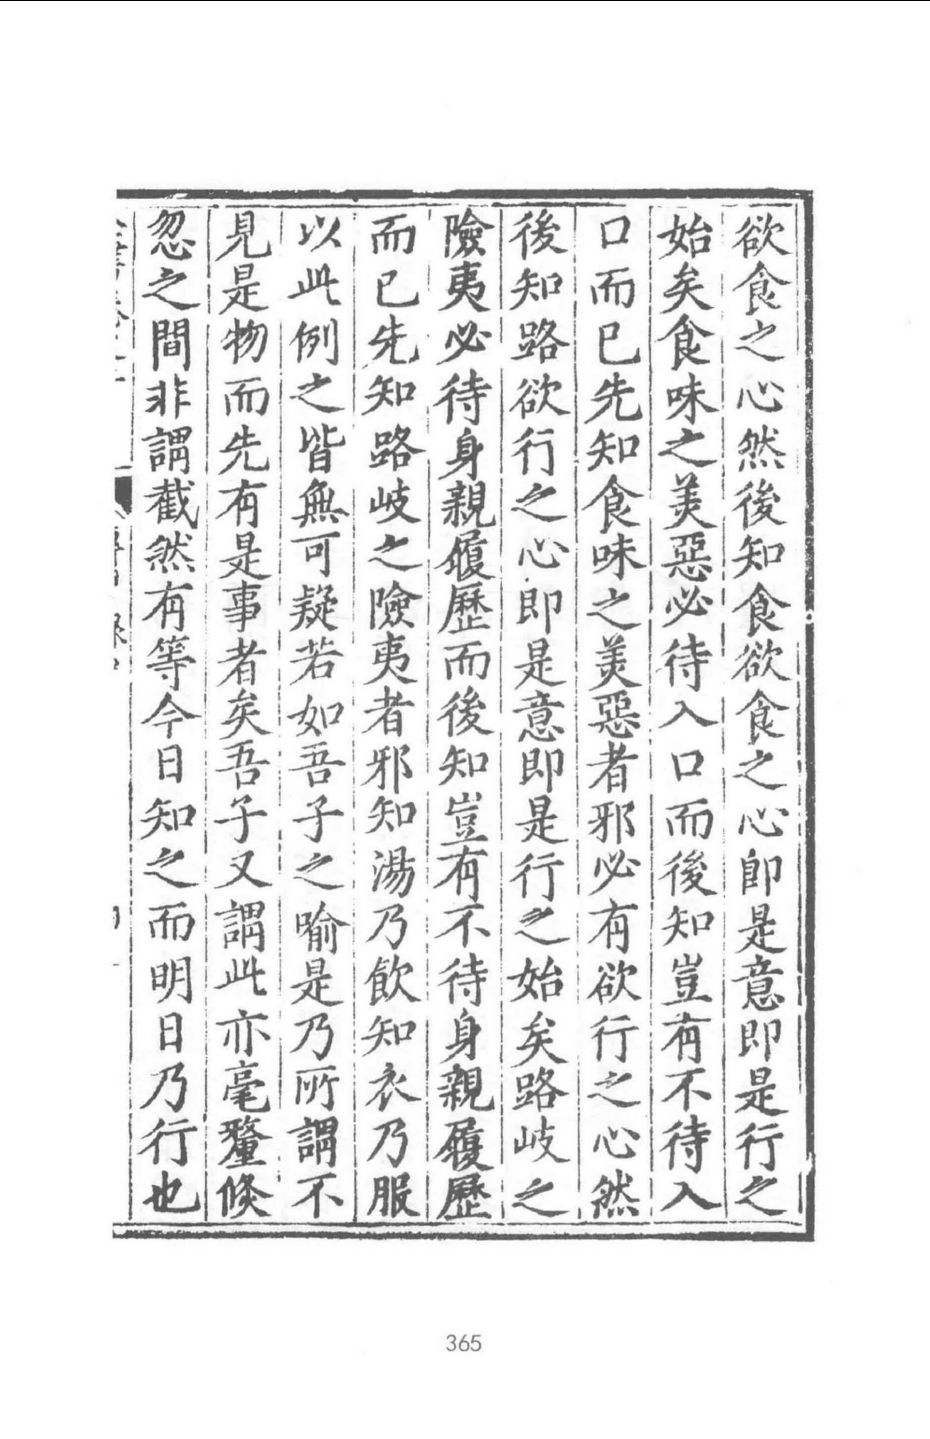 欲食之心然後知食欲食之心卽是意卽是行之
始矣食味之美惡必待入口而後知豈有不待入
口而已先知食味之美惡者邪必有欲行之心然
後知路欲行之心卽是意卽是行之始矣路岐之
險夷必待身親履歷而後知豈有不待身親履歷
而已先知路岐之險夷者邪知湯乃飲知衣乃服
以此例之皆無可疑若如吾子之喻是乃所謂不
見是物而先有是事者矣吾子又謂此亦毫釐倐
忽之間非謂截然有等今日知之而明日乃行也
365